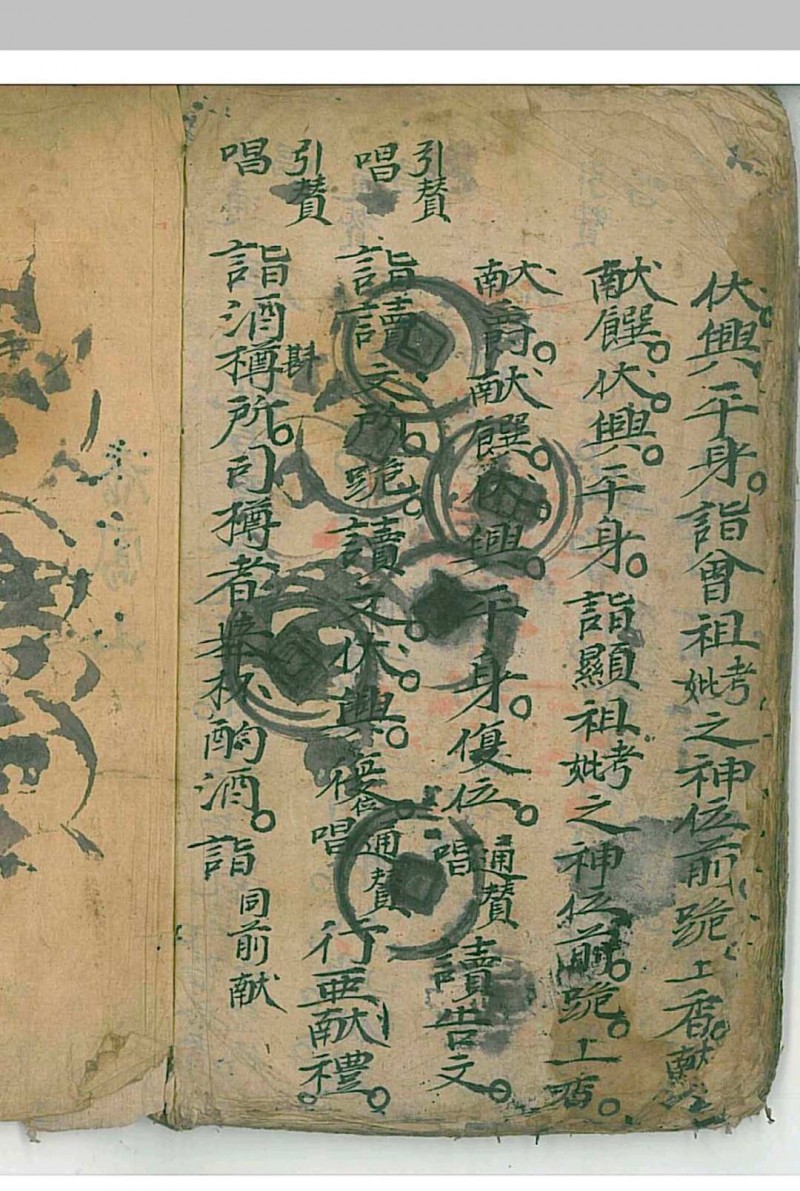 伏興平身。詣曾祖考妣之神位前跪上香。献
献饌。伏。興。平身。詣顯祖考妣之神位前。跪。上香。
献爵。献饌。伏。興。平身。復位。通賛唱讀告文。
引賛唱 詣讀文所。跪。讀文。伏。興。復位。通賛唱行亜献禮。
引賛唱 詣酒樽所。司樽者舉杯斟酌酒。詣同前献